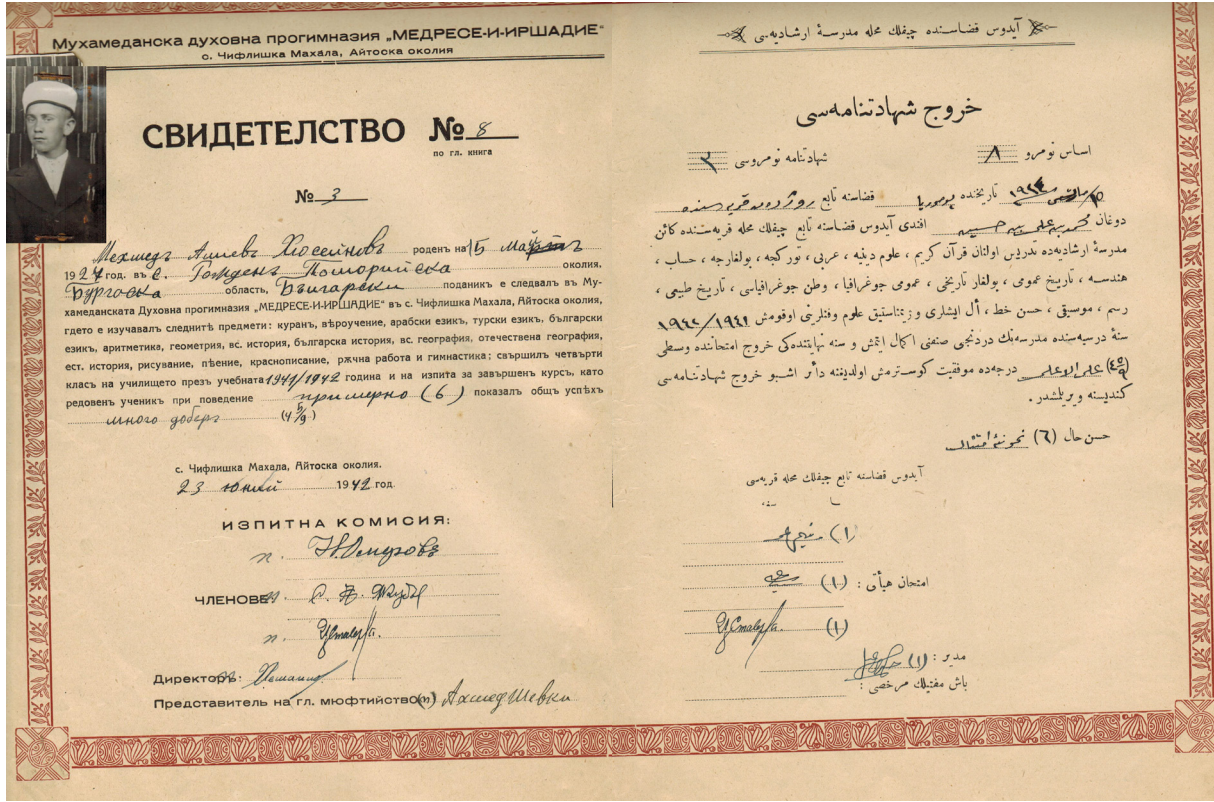 Мухамеданска духовна прогимназия „МЕДРЕСЕ-И-ИРШАДИЕ"
с. Чифлишка Махала, Айтоска околия
СВИДЕТЕЛСТВО № 8
по гл. книга
№ 3
Мехмедъ Алиевъ Хюсеиновъ роденъ на 15 мартъ
1927 год. въ с. Гожденъ Поморийска околия,
Бургаска область, Български поданикъ е следвалъ въ Му-
хамеданската Духовна прогимназия „МЕДРЕСЕ-И-ИРШАДИЕ" въ с. Чифлишка Махала, Айтоска околия,
гдето е изучавалъ следнитѣ предмети: куранъ, вѣроучение, арабски езикъ, турски езикъ, български
езикъ, аритметика, геометрия, вс. история, българска история, вс. география, отечествена география,
ест. история, рисуване, пѣение, краснописание, рѫчна работа и гимнастика; свършилъ четвърти
класъ на училището презъ учебната 1941/1942 година и на изпита за завършенъ курсъ, като
редовенъ ученикъ при поведение примерно (6) показалъ общъ успѣхъ
много добъръ (4 5/9)
с. Чифлишка Махала, Айтоска околия.
23 юний 1942 год.
ИЗПИТНА КОМИСИЯ:
п.
ЧЛЕНОВЕ:
п.
Директоръ:
Представитель на гл. мюфтийство: (п) Ахмед Шевки
آيدوس قضاسنده چيفلك محله مدرسهٔ ارشاديه‌سى
خروج شهادتنامه‌سى
اساس نومرو ٨ شهادتنامه نومروسى ٣
تاريخنده قضاسنه تابع
دوغان افندى آيدوس قضاسنه تابع چيفلك محله قريه‌سنده كائن
مدرسهٔ ارشاديه‌ده تدريس اولنان قرآن كريم ، علوم دينيه ، عربى ، توركجه ، بولغارجه ، حساب ،
هندسه ، تاريخ عمومى ، بولغار تاريخى ، عمومى جوغرافيا ، وطن جوغرافياسى ، تاريخ طبيعى ،
رسم ، موسيقى ، حسن خط ، أل ايشلرى و ژيمناستيق علوم وفنلرينى اوقومش ١٩٤١/١٩٤٢
سنهٔ درسيه‌سنده مدرسه‌نك دردنجى صنفنى اكمال ايتمش و سنه نهايتنده‌كى خروج امتحاننده وسطى
درجه‌ده موفقيت كوسترمش اولديغنه دأئر اشبو خروج شهادتنامه‌سى
كنديسنه ويريلمشدر .
حسن حال (٦)
آيدوس قضاسنه تابع چيفلك محله قريه‌سى
امتحان هيأتى :
مدير :
باش مفتيلك مرخصى :